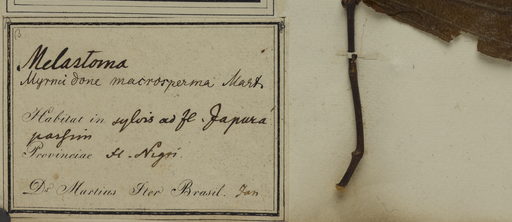 Melastoma
Myrmidone macrosperma Mart.
Habitat in sylvis ad fl. Japurá
passim
Provinciae fl. Nigri
Dr. Martius Iter Brasil. Jan